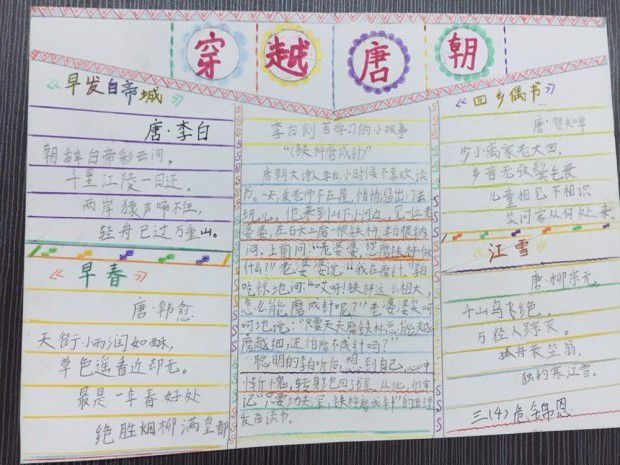 穿越唐朝
《早发白帝城》
唐·李白
朝辞白帝彩云间。
千里江陵一日还。
两岸猿声啼不住,
轻舟已过万重山。
《早春》
唐韩愈
天街小雨润如酥,
草色遥看近却无。
最是一年春好处
绝胜烟柳满皇都
李白刻苦学习的小故事
"(铁杵磨成针)"
唐朝大诗人李白,小时候不喜欢读
书。一天,乘老师不在屋,悄悄溜出门去
玩儿。他来到山下小河边,见一位老
婆婆,在石头上磨一根铁杵。李白很纳
闷,上前问:"老婆婆,您磨铁杵做
什么?"老婆婆说:"我在磨针。"李白
吃惊地问:"哎呀!铁杵这么粗大,
怎么能磨成针呢?"老婆婆笑呵
呵地说:"只要天天磨铁杵总能越
磨越细,还怕磨不成针吗?"
聪明的李白听后,想到自己,心中
惭愧,转身跑回了书屋。从此,他牢
记"只要功夫深,铁杵磨成针"的道理
发奋读书。
《回乡偶书》
唐·贺知章
少小离家老大回,
乡音无改鬓毛衰
儿童相见不相识
笑问客从何处来。
《江雪》
唐·柳宗元
千山鸟飞绝,
万径人踪灭。
孤舟蓑笠翁,
独钓寒江雪。
三(4)危锦恩